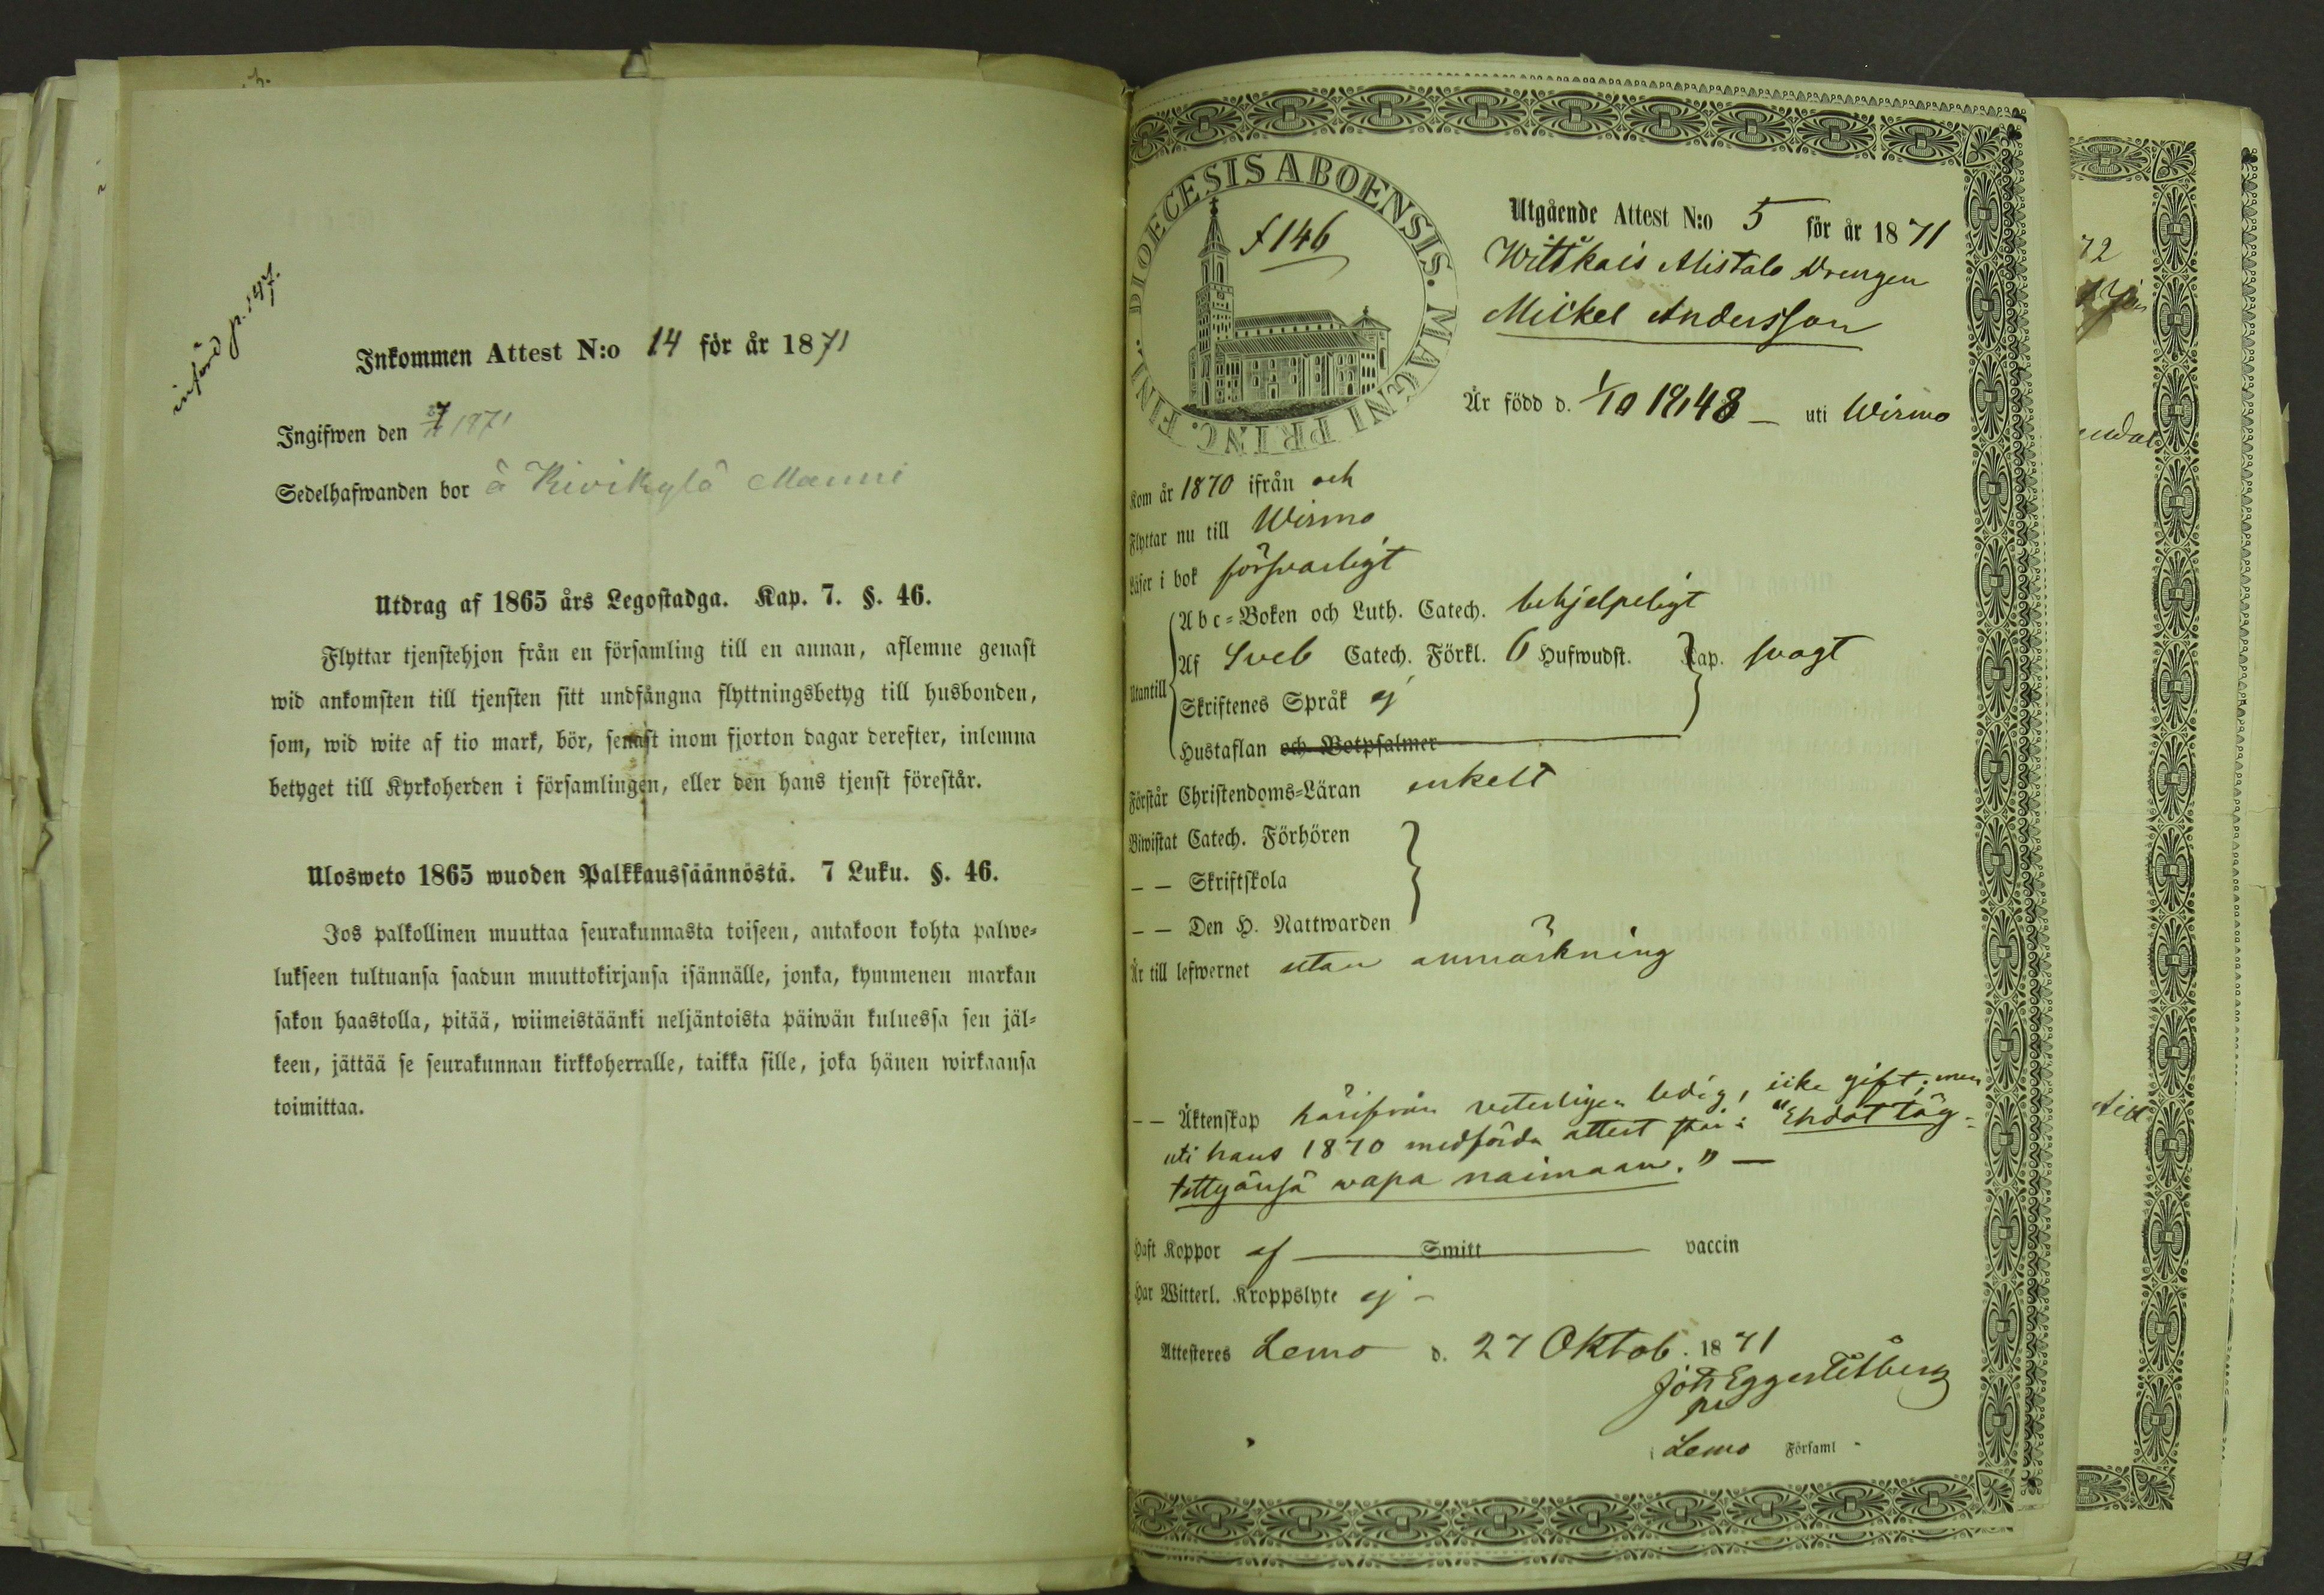 införd p. 147.
Inkommen Attest N:o 14 för år 1871
Ingifwen den 1871
Sedelhafwanden bor å Kivikylä Manni
Utdrag af 1865 års Legostadga. Kap. 7. §. 46.
Flyttar tjenstehjon från en församling till en annan, aflemne genast
wid ankomsten till tjensten sitt undfångna flyttningsbetyg till husbonden,
som, wid wite af tio mark, bör, senast inom fjorton dagar derefter, inlemna
betyget till Kyrkoherden i församlingen, eller den hans tjenst förestår.
Ulosweto 1865 wuoden Palkkaussäännöstä. 7 Luku. §. 46.
Jos palkollinen muuttaa seurakunnasta toiseen, antakoon kohta palwe-
lukseen tultuansa saadun muuttokirjansa isännälle, jonka, kymmenen markan
sakon haastolla, pitää, wiimeistäänki neljäntoista päiwän kuluessa sen jäl-
keen, jättää se seurakunnan kirkkoherralle, taikka sille, joka hänen wirkaansa
toimittaa.
DIOECESIS ABOENSIS. MAGNI PRINC. FINL.
f 146
Utgående Attest N:o 5 för år 1871
Wittkais Alistalo Drengen
Mickel Andersson
Är född d. 1/10 1848 — uti Wirmo
Kom år 1870 ifrån och
Flyttar nu till Wirmo
Läser i bok försvarligt
Utantill
Abc-Boken och Luth. Catech. behjelpeligt
Af Sveb Catech. Förkl. 6 Hufwudst. Kap. svagt
Skriftenes Språk ej
Hustaflan och Botpsalmer
Förstår Christendoms-Läran enkelt
Biwistat Catech. Förhören
— — Skriftskola
— — Den H. Nattwarden
Är till lefwernet utan anmärkning
— — Äktenskap härifrån veterligen ledig, icke gift, men
uti hans 1870 medförda attest står: "Ehdot täy-
tettyänsä wapa naimaan." —
Haft Koppor ej — Smitt — vaccin
Har Witterl. Kroppslyte ej —
Attesteres Lemo d. 27 Oktob. 1871
Joh Eggert Elfberg
i Lemo Församl
72